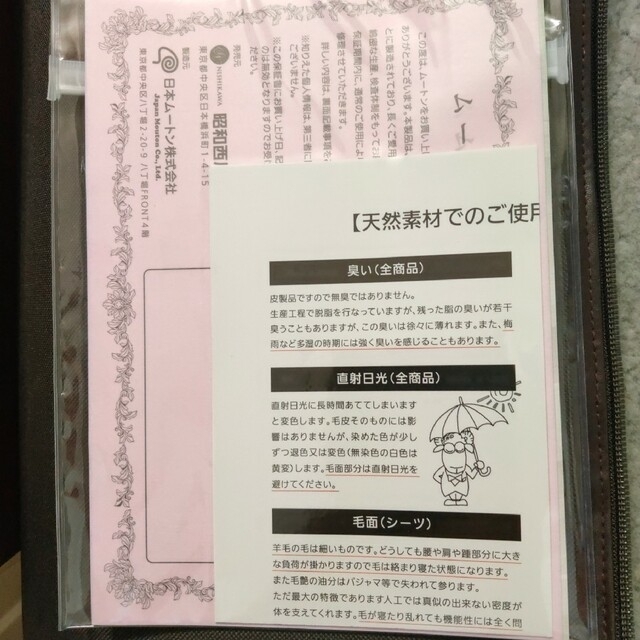 【天然素材でのご使用
臭い(全商品)
皮製品ですので無臭ではありません。
生産工程で脱脂を行なっていますが、残った脂の臭いが若干
臭うこともありますが、この臭いは徐々に薄れます。また、梅
雨など多湿の時期には強く臭いを感じることもあります。
直射日光(全商品)
直射日光に長時間あててしまいます
と変色します。毛皮そのものには影
響はありませんが、染めた色が少し
ずつ退色又は変色(無染色の白色は
黄変)します。毛面部分は直射日光を
避けてください。
毛面(シーツ)
羊毛の毛は細いものです。どうしても腰や肩や踵部分に大き
な負荷が掛かりますので毛は絡まり寝た状態になります。
また毛艶の油分はパジャマ等で失われて参ります。
ただ最大の特徴であります人工では真似の出来ない密度が
体を支えてくれます。毛が寝たり乱れても機能性には全く問
ムー
この度は、ムートンをお買い上
ありがとうございます。本製品は、
とに製造されており、長くご愛用
厳密な生産、検査体制をもってお
保証期間内に、通常のご使用により
修理させていただきます。
詳しい内容は、裏面記載事項を
※知りえた個人情報は、第三者に
ございません。
※この保証書にお買い上げ日、記
のは無効となりますのでお受け
ださい。
発売元
NISHIKAWA
昭和西川
東京都中央区日本橋浜町1-4-15
製造元
日本ムートン株式会社
Japan Mouton Co., Ltd.
東京都中央区八丁堀2-20-9 八丁堀FRONT4階